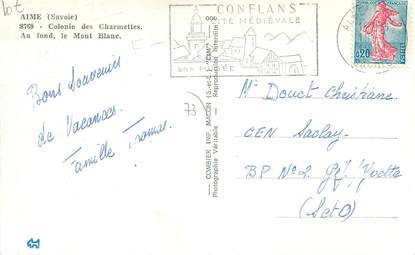 10E
AIME (Savoie)
8769 - Colonie des Charmettes.
Au fond, le Mont Blanc.
CONFLANS
CITÉ MÉDIÉVALE
SON MUSÉE
0,20
Bons Souvenirs
de Vacances.
Famille
73
COMBIER IMP. MACON (S.-et-L.) "CIM"
Photographie Véritable - Reproduction Interdite
Mr Doucet Christiane
CEN Saclay
BP No 2 Gif s/ Yvette
(S et O)